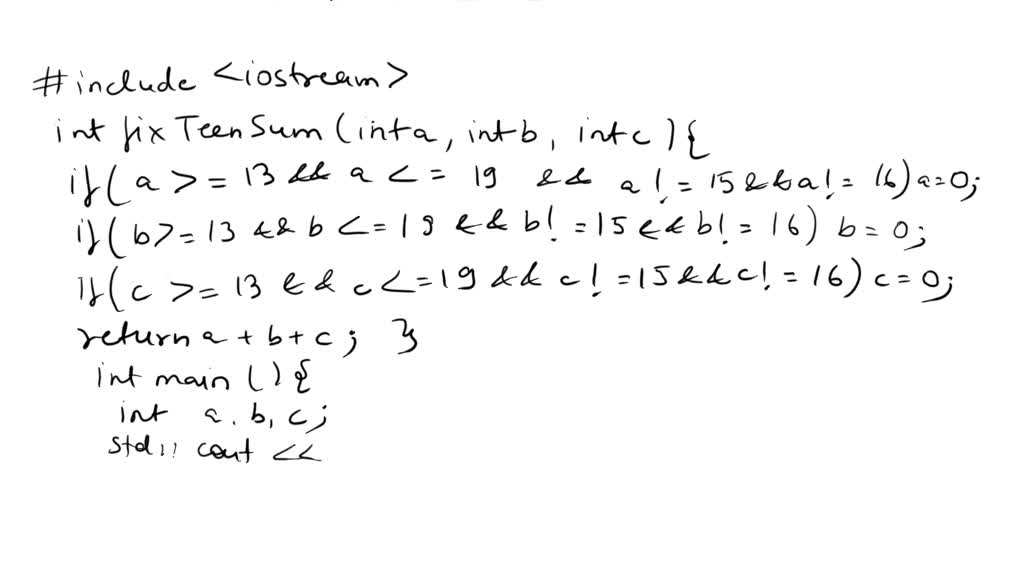 #include <iostream>
int fixTeenSum (int a, int b, int c) {
if( a >= 13 && a <= 19 && a != 15 && a != 16) a=0;
if( b >= 13 && b <= 19 && b != 15 && b != 16) b = 0;
If( c >= 13 && c <= 19 && c != 15 && c != 16) c = 0;
return a + b + c ; }
int main () {
int a. b, c;
std:: cout <<